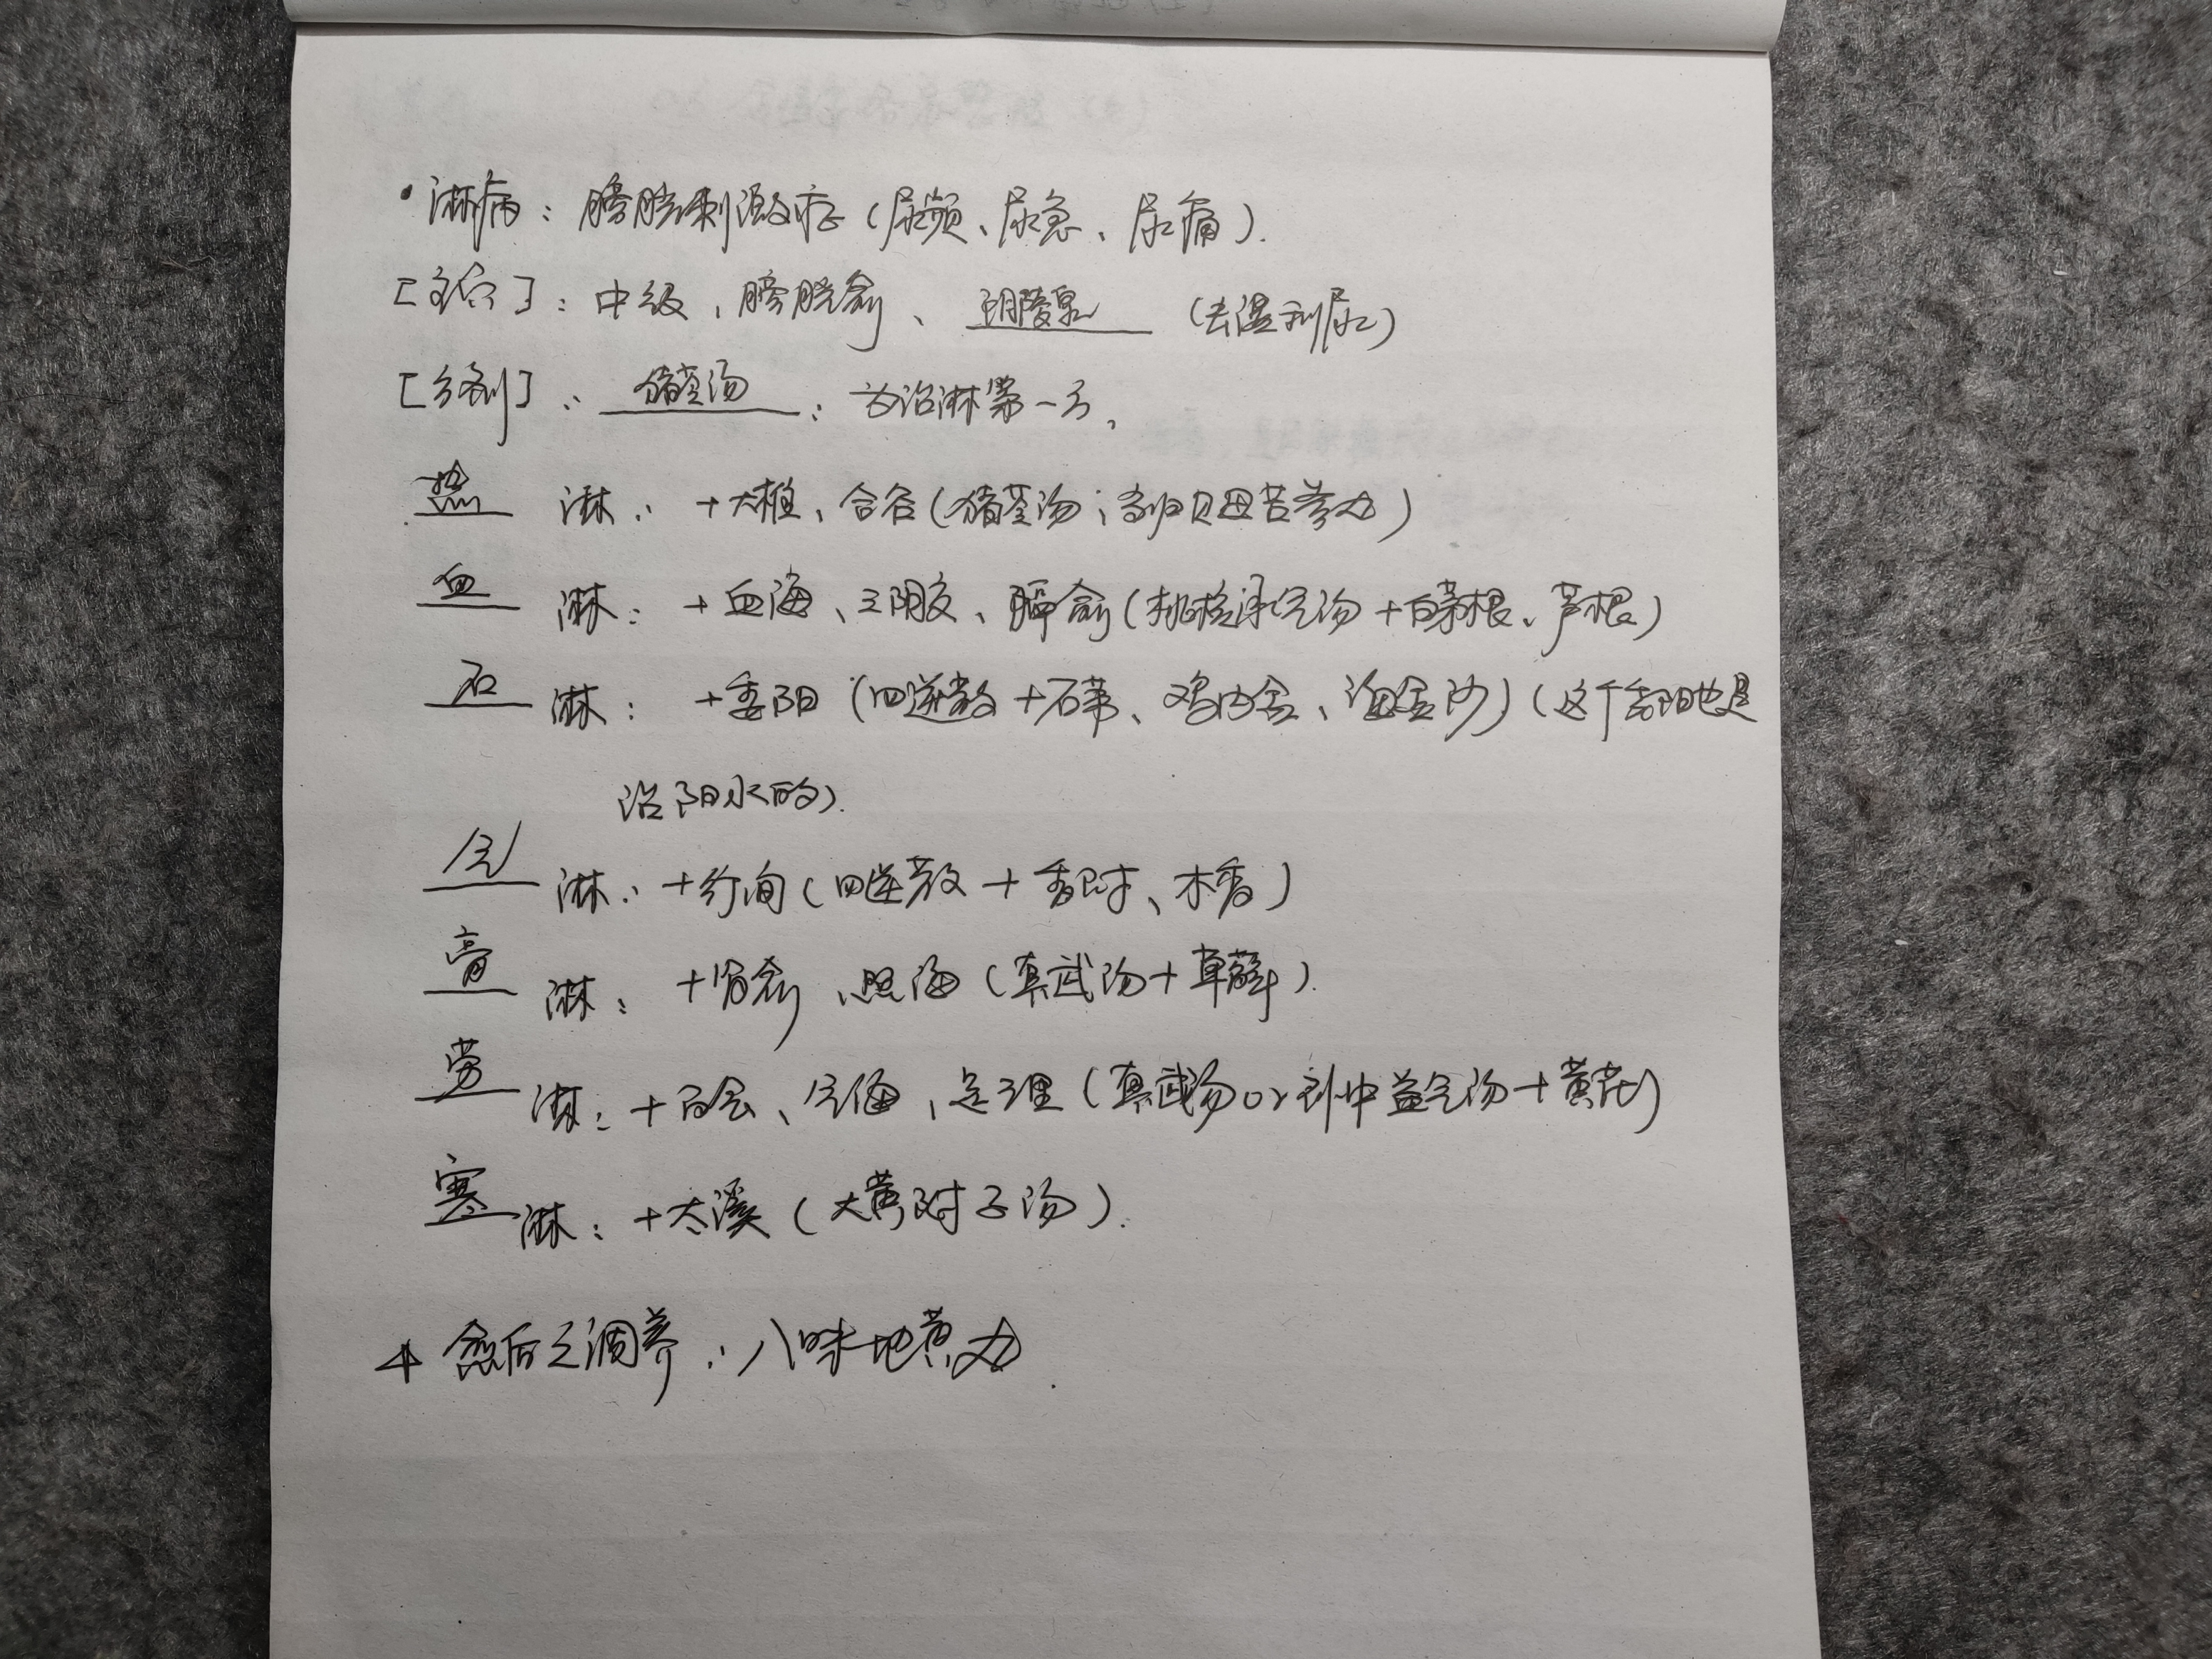 ·淋病：膀胱刺激症（尿频、尿急、尿痛）.
[主穴]：中极、膀胱俞、阴陵泉（去湿利尿）
[方剂]：猪苓汤：为治淋第一方，
热淋：+大椎、合谷（猪苓汤；当归贝母苦参丸）
血淋：+血海、三阴交、膈俞（桃核承气汤+白茅根、芦根）
石淋：+委阳（四逆散+石苇、鸡内金、海金沙）（这个委阳也是
治阳水的）.
气淋：+行间（四逆散+香附、木香）
膏淋：+肾俞、照海（真武汤+萆薢）.
劳淋：+百会、气海、足三里（真武汤or补中益气汤+黄芪）
寒淋：+太溪（大黄附子汤）.
愈后之调养：八味地黄丸.